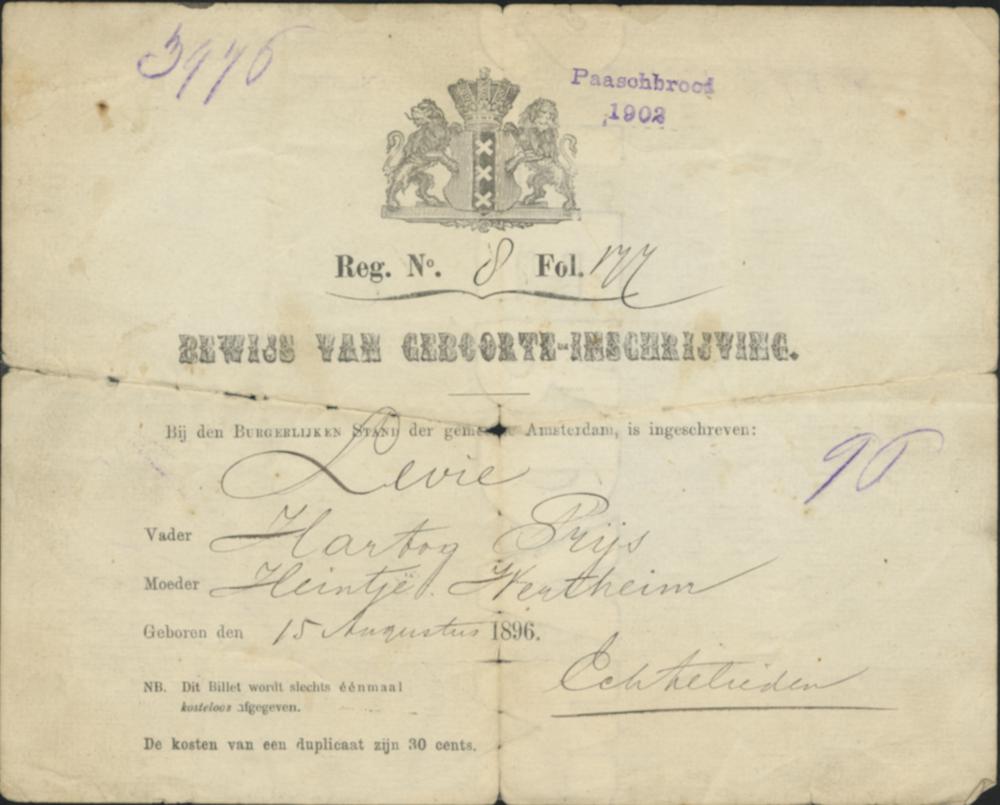 3976
Paaschbrood
1902
Reg. No. 8 Fol. 177
BEWIJS VAN GEBOORTE-INSCHRIJVING.
Bij den BURGERLIJKEN STAND der gemeente Amsterdam, is ingeschreven:
Levie
96
Vader Hartog Prijs
Moeder Heintje Wertheim
Geboren den 15 Augustus 1896.
Echtelieden
NB. Dit Billet wordt slechts éénmaal
kosteloos afgegeven.
De kosten van een duplicaat zijn 30 cents.